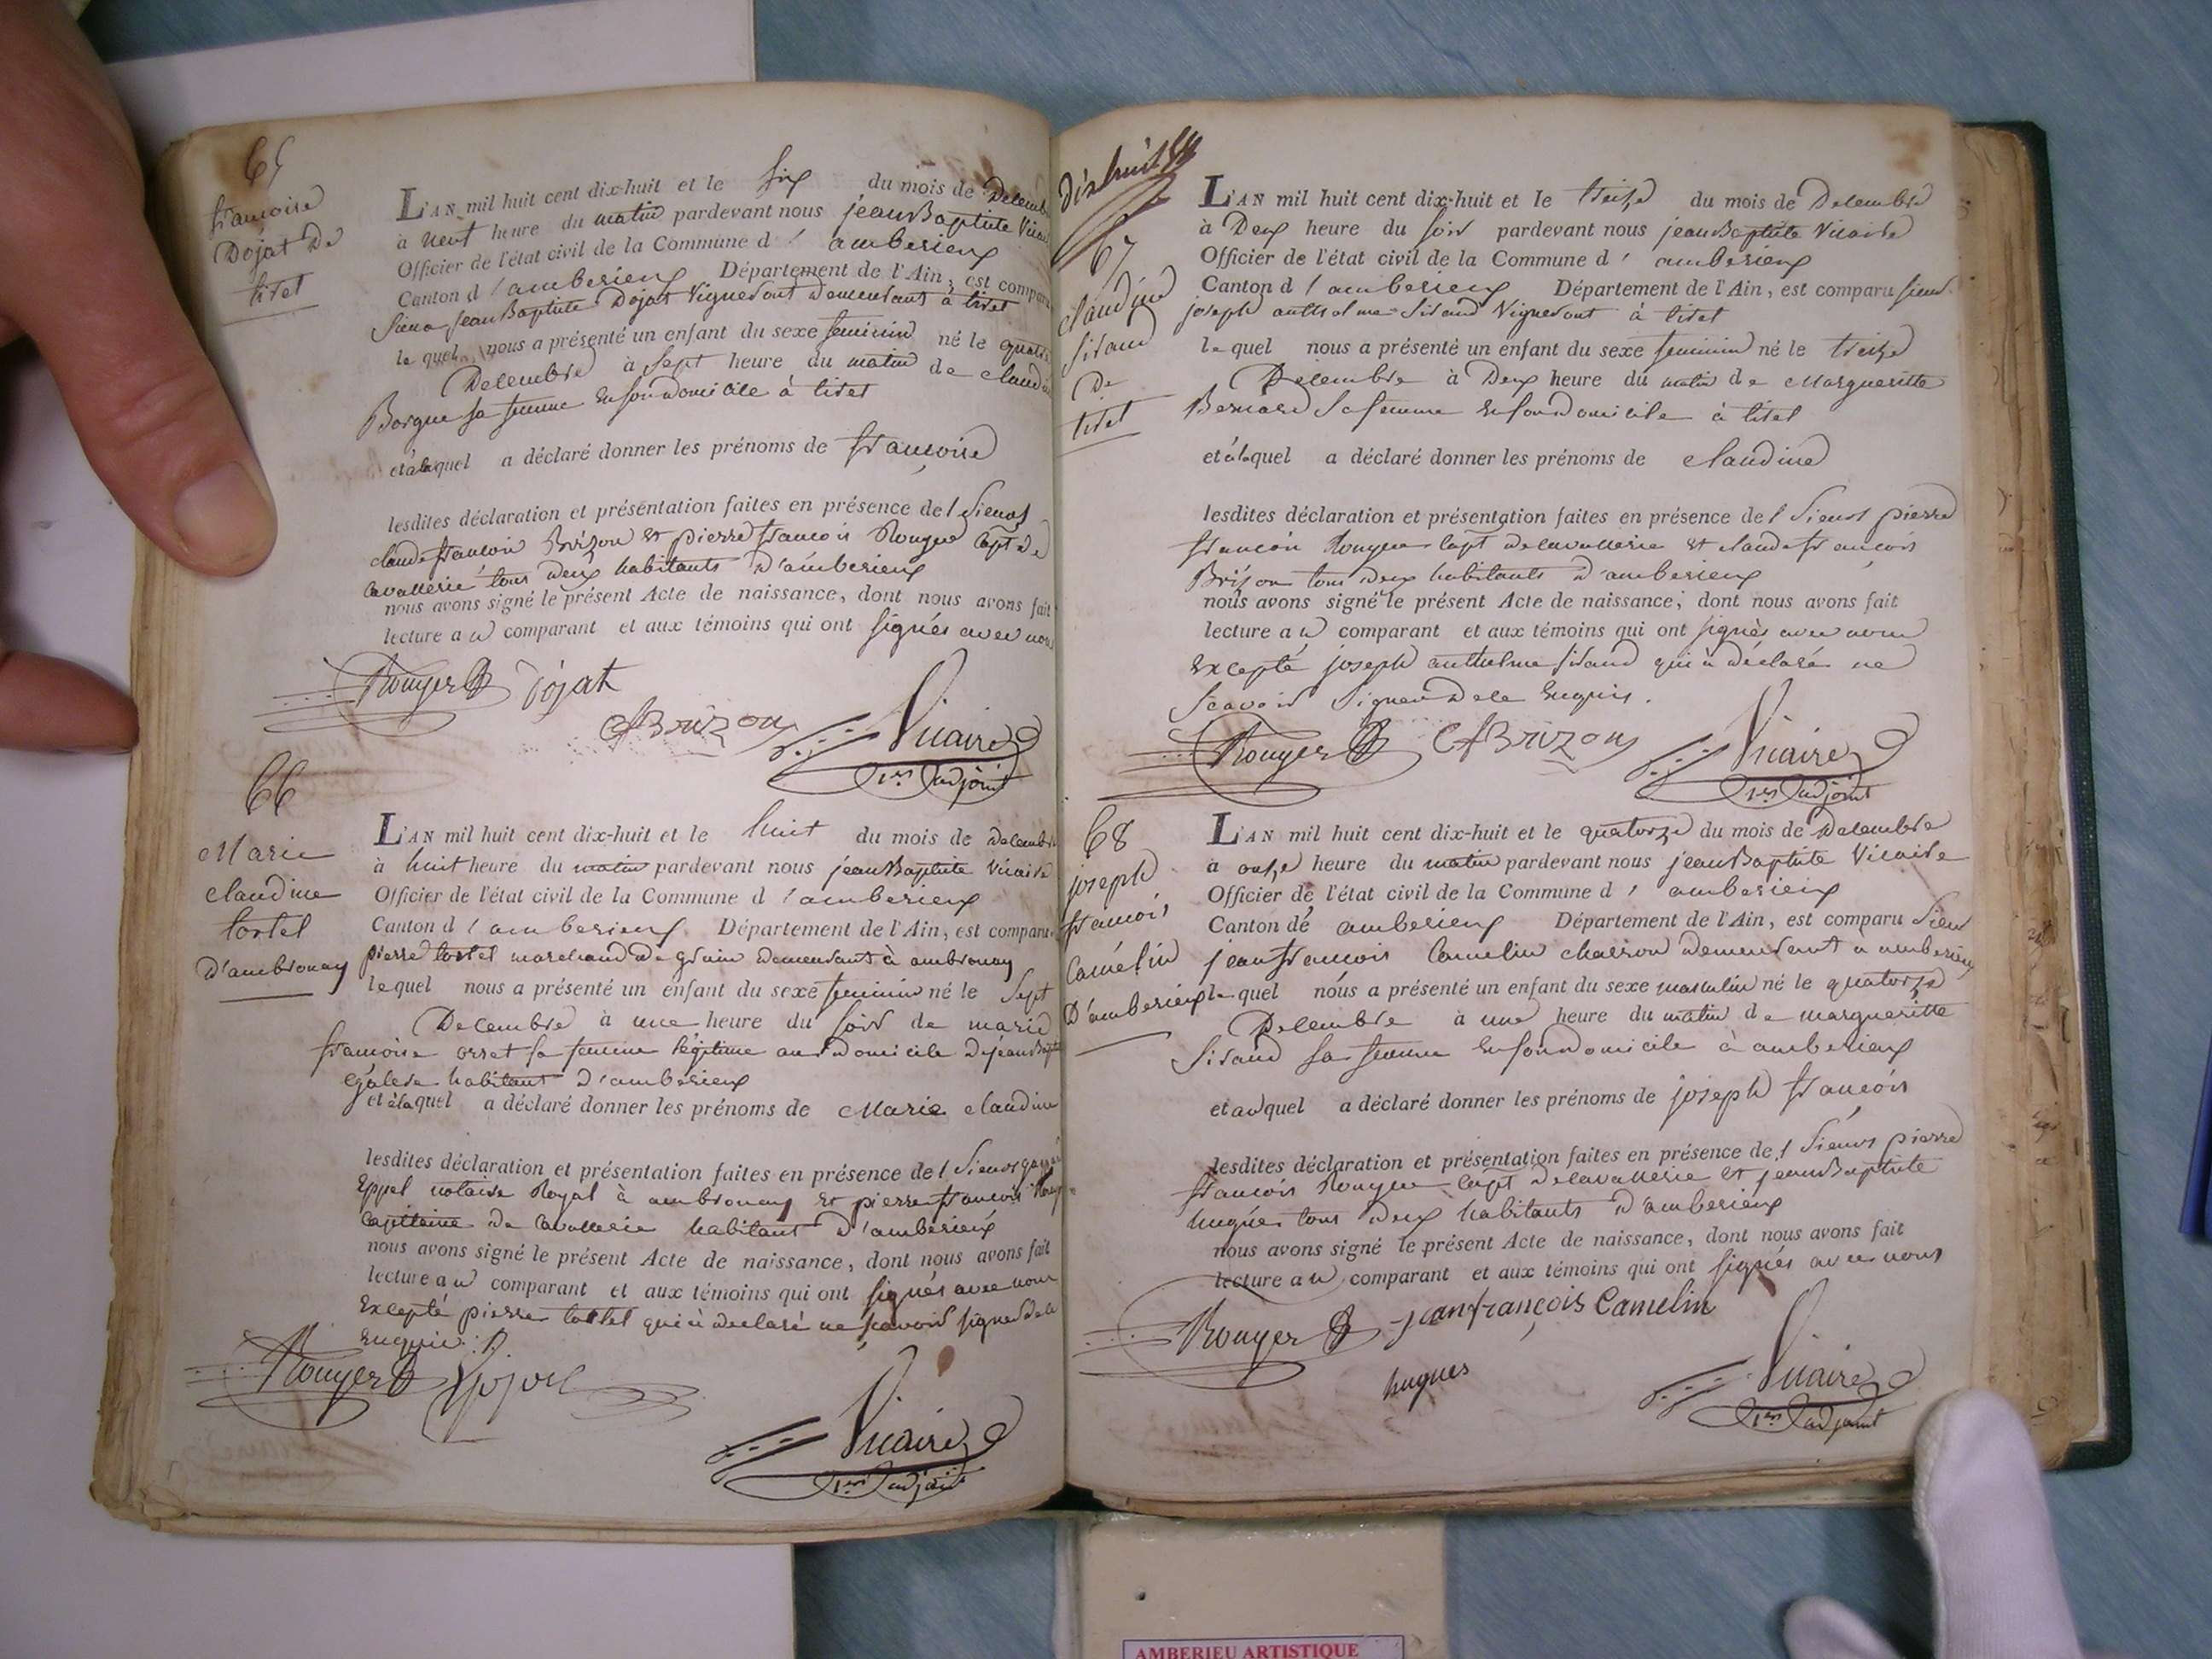 65
francoise
Dojat De
tiret
L'AN mil huit cent dix-huit et le six du mois de Decemb
à neuf heure du matin pardevant nous jean Baptiste Vicai
Officier de l'état civil de la Commune d' amberieux
Canton d'amberieux Département de l'Ain, est comparu
Sieur jean Baptiste Dojat Vigneront demeurant à tiret
le quel nous a présenté un enfant du sexe feminin né le quatr
Decembre à Sept heure du matin de claudi
Borgue sa femme en son domicile à tiret
et à laquel a déclaré donner les prénoms de francoise
lesdites déclaration et présentation faites en présence des Sieurs
claude francois Brizon et pierre francois Rouyer capt de
cavallerie tous deux habitants d'amberieux
nous avons signé le présent Acte de naissance, dont nous avons fait
lecture au comparant et aux témoins qui ont signés avec nous
Rouyer Dojat
CfBrizon Vicaire
1er adjoint
66
Marie
claudine
tortel
D'ambronay
L'AN mil huit cent dix-huit et le huit du mois de decembre
à huit heure du matin pardevant nous jean Baptiste Vicaire
Officier de l'état civil de la Commune d'amberieux
Canton d'amberieux Département de l'Ain, est comparu
pierre tortel marchand de grain demeurant à ambronay
lequel nous a présenté un enfant du sexe feminin né le Sept
Decembre à une heure du soir de marie
francoise orset sa femme légitime au domicile de jean Bapt
habitant d'amberieux
et à laquel a déclaré donner les prénoms de Marie claudine
lesdites déclaration et présentation faites en présence des Sieurs
notaire Royal à ambronay et pierre francois Rouy
capitaine de cavallerie habitant d'amberieux
nous avons signé le présent Acte de naissance, dont nous avons fait
lecture au comparant et aux témoins qui ont signés avec nous
Excepté pierre tortel qui à declaré ne scavoir signer de ce
enquis
Rouyer
Vicaire
1er adjoint
dix huit
67
claudine
sirand
De
tiret
L'AN mil huit cent dix-huit et le treize du mois de Decembre
à Deux heure du soir pardevant nous jean Baptiste Vicaire
Officier de l'état civil de la Commune d' amberieux
Canton d'amberieux Département de l'Ain, est comparu sieur
joseph anthelme Sirand Vigneront à tiret
lequel nous a présenté un enfant du sexe feminin né le treize
Decembre à Deux heure du matin de Margueritte
Bernard sa femme en son domicile à tiret
et à laquel a déclaré donner les prénoms de claudine
lesdites déclaration et présentation faites en présence des Sieurs pierre
francois Rouyer capt de cavallerie et claude francois
Brizon tous deux habitants d'amberieux
nous avons signé le présent Acte de naissance, dont nous avons fait
lecture au comparant et aux témoins qui ont signés avec nous
Excepté joseph anthelme sirand qui à déclaré ne
scavoir signer de ce enquis.
Rouyer CfBrizon Vicaire
1er adjoint
68
joseph
francois
Camelin
D'amberieux
L'AN mil huit cent dix-huit et le quatorze du mois de Decembre
à onze heure du matin pardevant nous jean Baptiste Vicaire
Officier de l'état civil de la Commune d' amberieux
Canton dé amberieux Département de l'Ain, est comparu Sieur
jean francois Camelin charron demeurant a amberieux
le quel nous a présenté un enfant du sexe masculin né le quatorze
Decembre à une heure du matin de margueritte
Sirand sa femme en son domicile à amberieux
et auquel a déclaré donner les prénoms de joseph francois
lesdites déclaration et présentation faites en présence des Sieurs pierre
francois Rouyer capt de cavallerie et jean Baptiste
hugues tous deux habitants d'amberieux
nous avons signé le présent Acte de naissance, dont nous avons fait
lecture au comparant et aux témoins qui ont signés avec nous
Rouyer jeanfrançois Camelin
hugues Vicaire
1er adjoint
AMBERIEU ARTISTIQUE